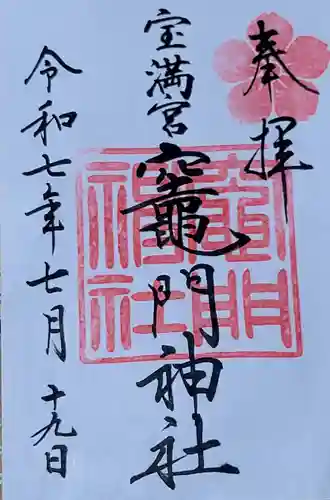 奉拝
宝満宮
竈門神社
竈門神社
令和七年七月十九日